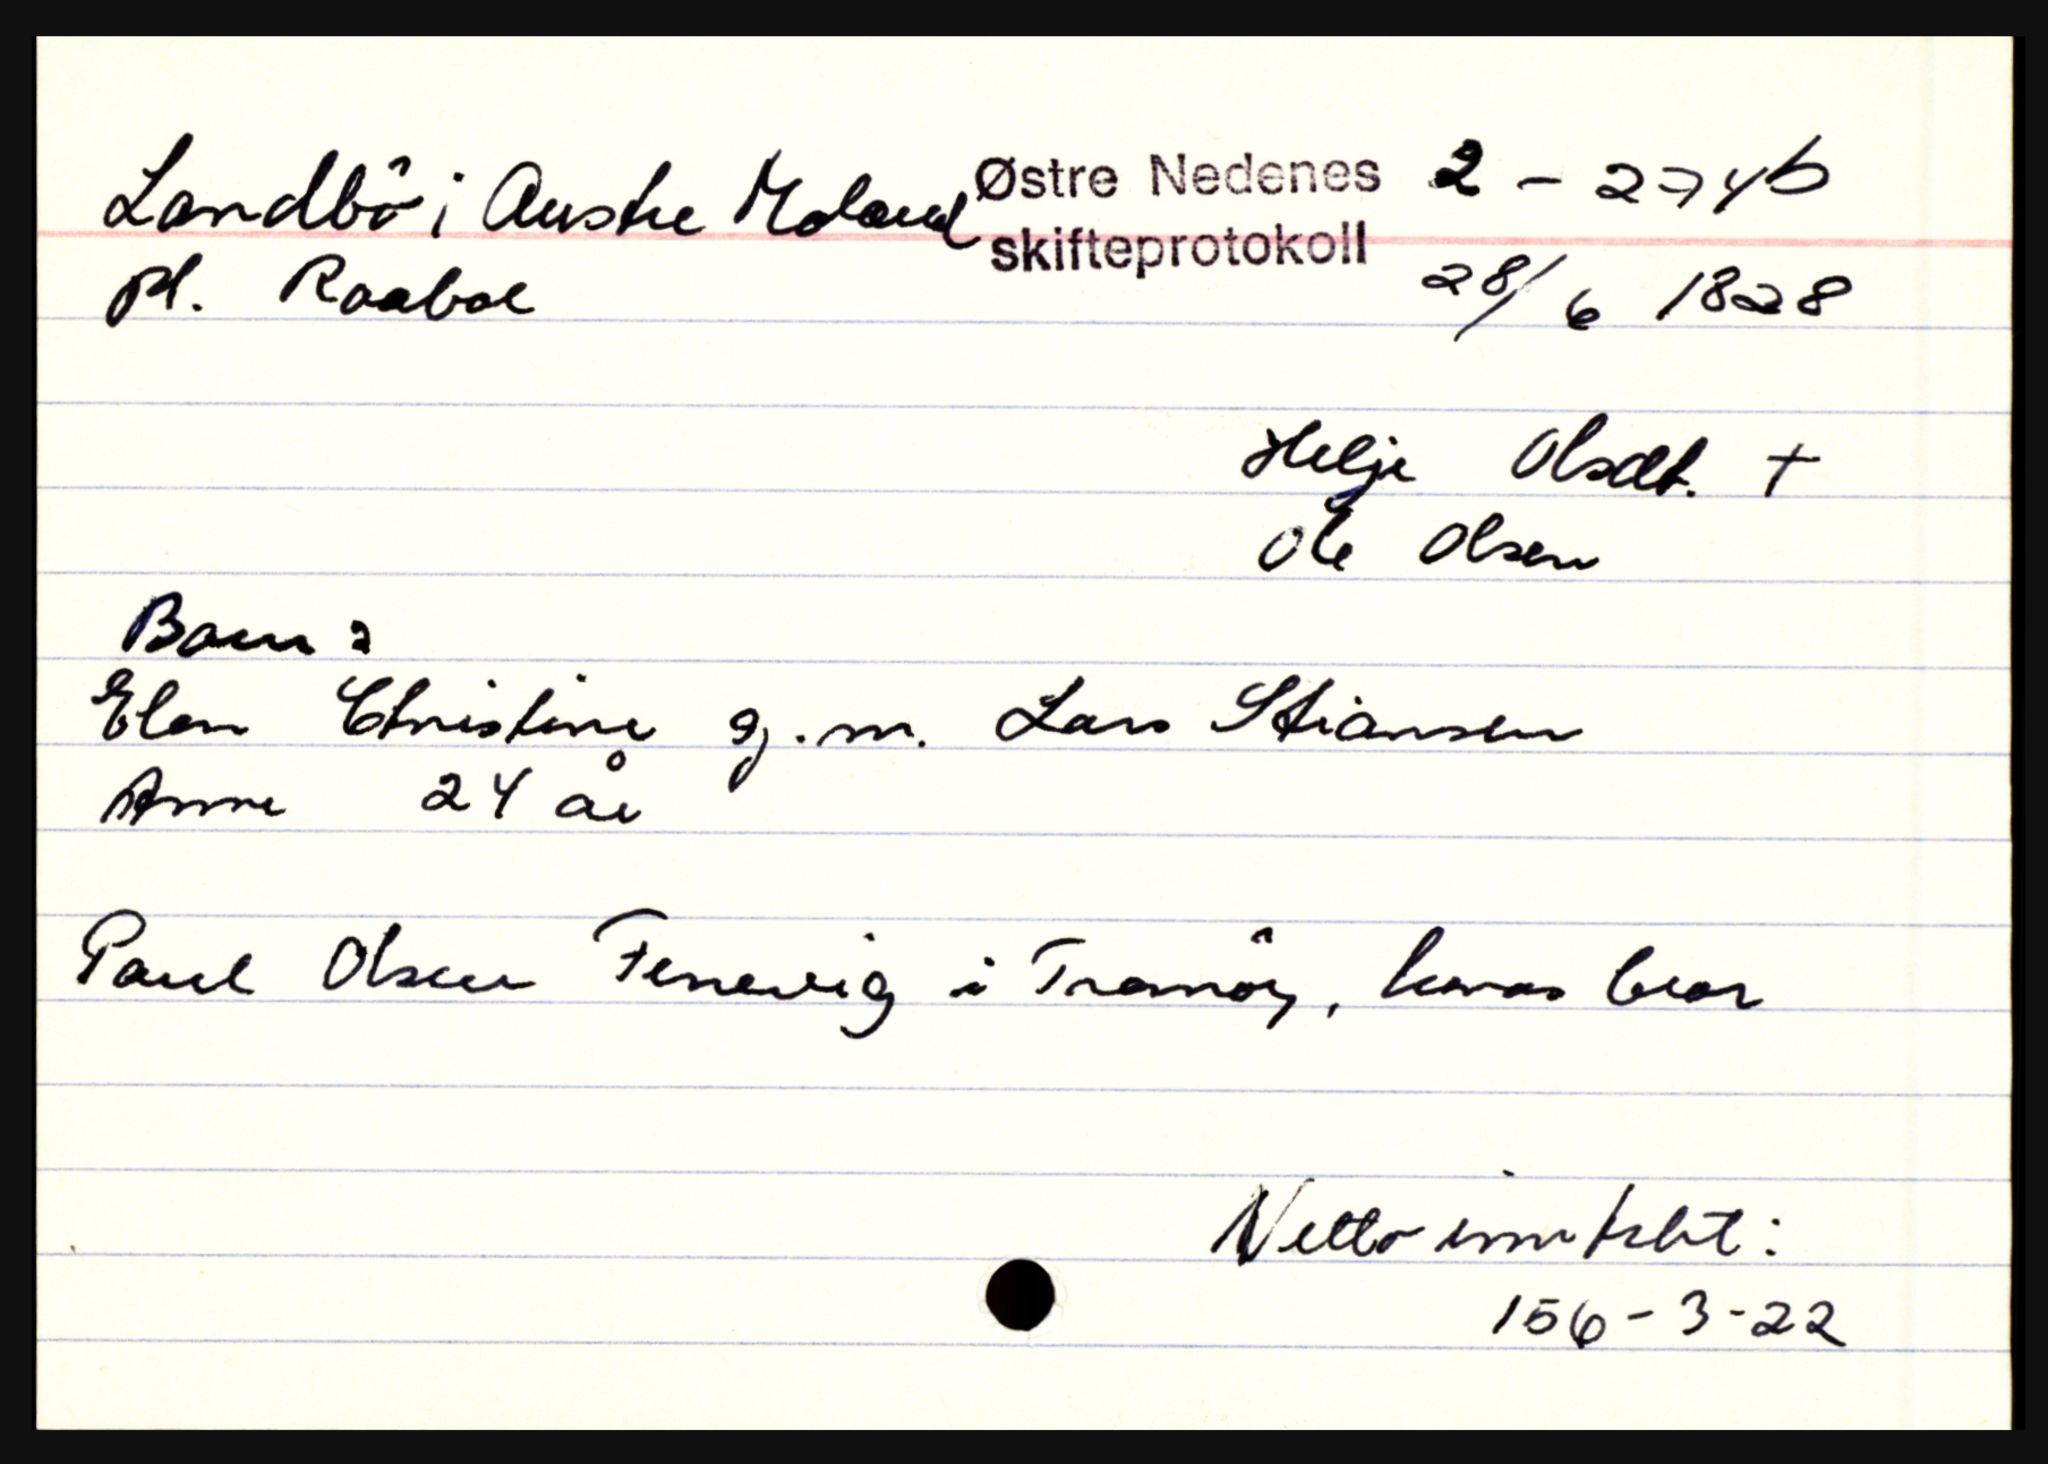 Landbö i Austre Moland Østre Nedenes 2 - 274b
skifteprotokoll
pl. Raabae 28/6 1828
Helje Olsdt. +
Ole Olsen
Barn:
Elen Christine g.m. Lars Stiansen
Anne 24 år
Paul Olsen Fenevig i Tromöy, hennes bror
Netto inntekt:
156-3-22